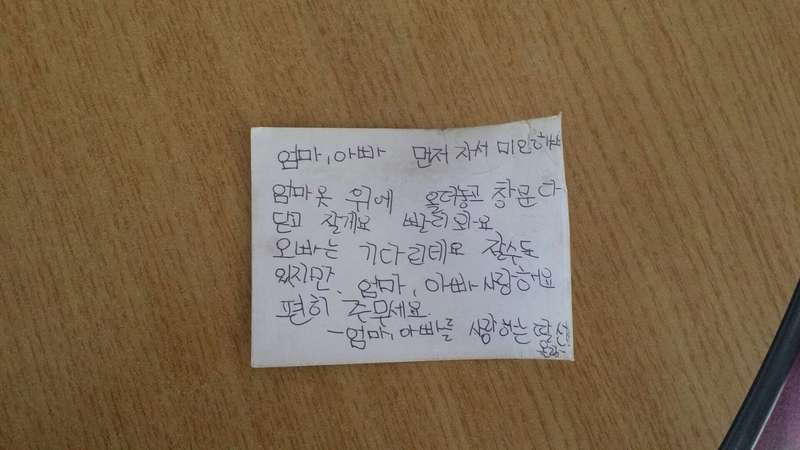 엄마, 아빠 먼저 자서 미안해
엄마 옷 위에 올려놓고 창문 다
닫고 잘게요 빨리와요
오빠는 기다린데요 잘수도
있지만, 엄마, 아빠 사랑해요
편히 주무세요.
-엄마, 아빠를 사랑하는 딸